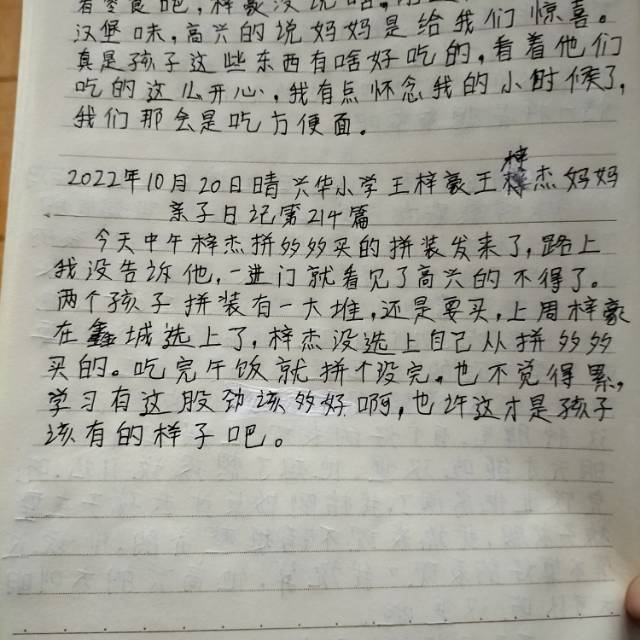 着零食吧,梓豪没说啥,
汉堡味,高兴的说妈妈是给我们惊喜。
真是孩子这些东西有啥好吃的,看着他们
吃的这么开心,我有点怀念我的小时候了,
我们那会是吃方便面。
2022年10月20日晴兴华小学王梓豪王梓杰妈妈
亲子日记第214篇
今天中午梓杰拼多多买的拼装发来了,路上
我没告诉他,一进门就看见了高兴的不得了。
两个孩子拼装有一大堆,还是要买,上周梓豪
在鑫城选上了,梓杰没选上自己从拼多多
买的。吃完午饭就拼个没完。也不觉得累,
学习有这股劲该多好啊,也许这才是孩子
该有的样子吧。